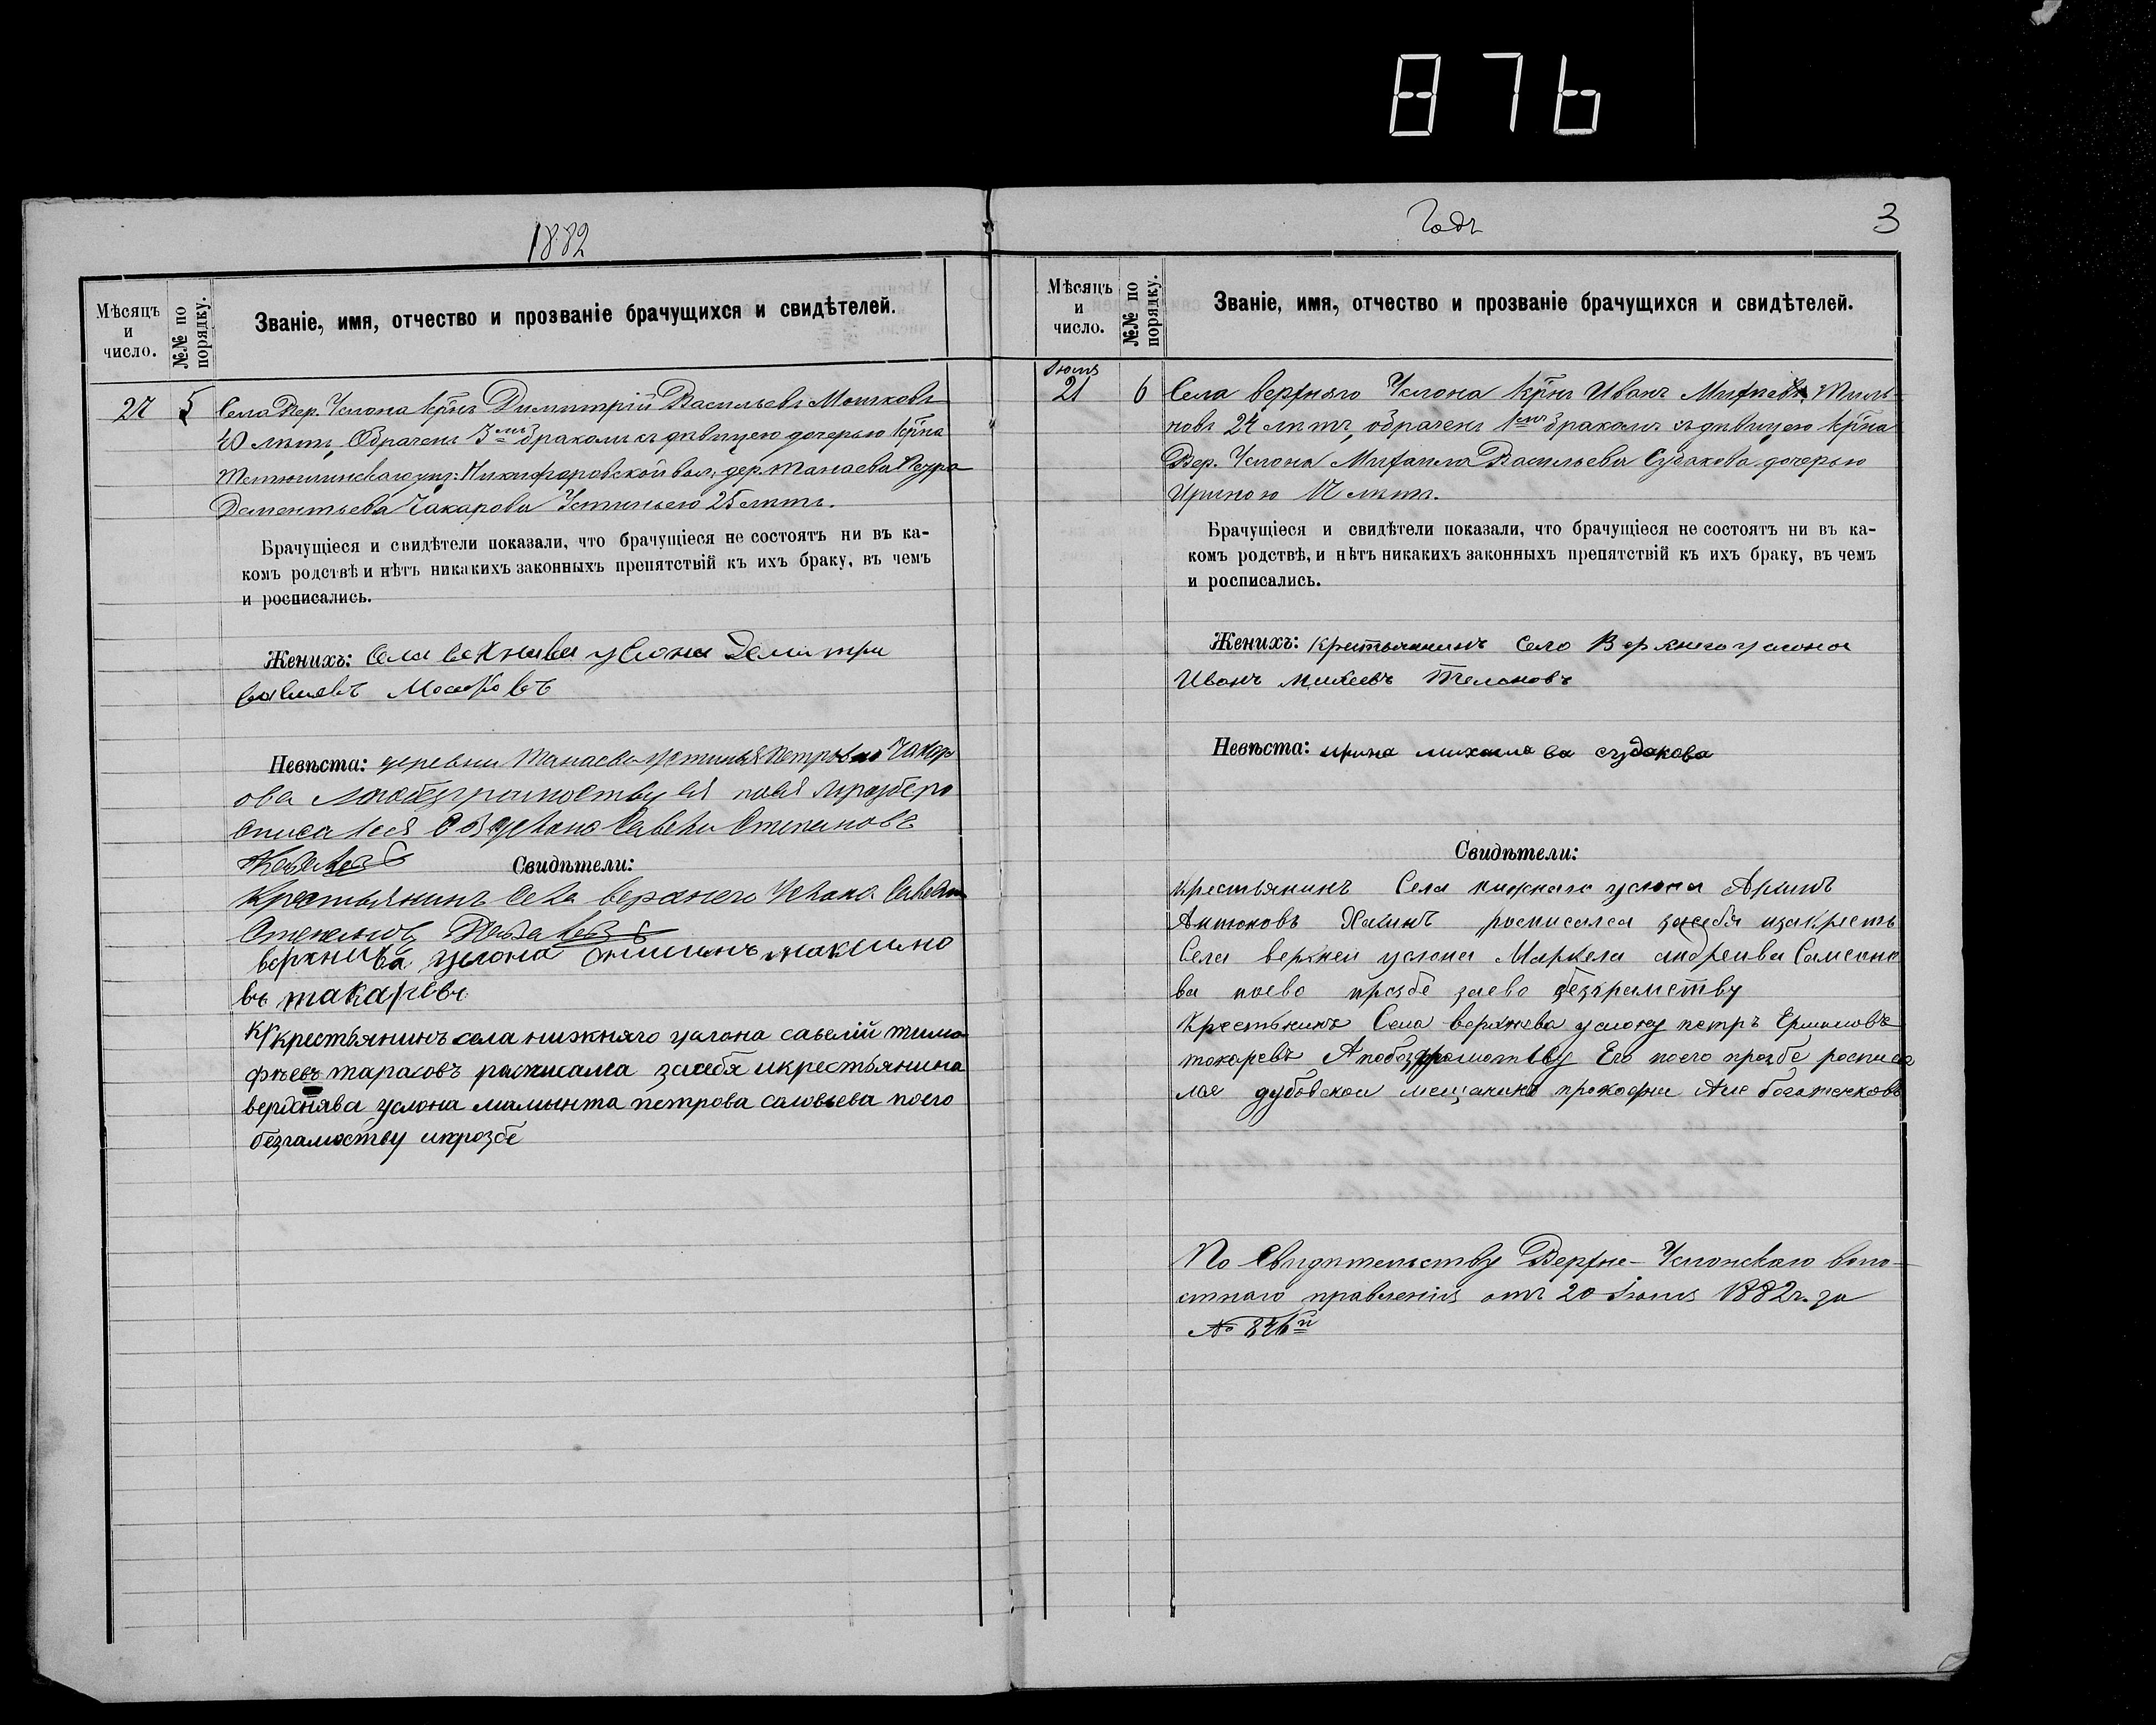 876
1882
Мѣсяцъ и число.
№№ по порядку.
Званіе, имя, отчество и прозваніе брачущихся и свидѣтелей.
27 5 Села Вер. Услона кр̃нъ Димитрій Васильевъ Мошковъ
40 лѣтъ, Обрачен 3мъ бракомъ съ дѣвицею дочерью кр̃на
Тетюшинскаго уѣз: Никифоровской вол. дер. Танаева Петра
Дементьева Чакарова Устиньею 25 лѣтъ.
Брачущіеся и свидѣтели показали, что брачущіеся не состоятъ ни въ ка-
комъ родствѣ и нѣтъ никакихъ законныхъ препятствій къ ихъ браку, въ чемъ
и росписались.
Женихъ: Села услона Демитри
Мошковъ
Невѣста: деревни Танаева устинья Петровна Чакар
ова
Савели Степановъ
Свидѣтели:
Крестьянинъ Села верхнего Услона Савели
Степанов
верхнива услона максимо
въ макаровъ
крестьянинъ села нижняго услона савелій тимо
фѣевъ тарасовъ росписался засебя икрестьянина
верхнява услона мамынта петрова саловьева поего
безгамоству ипрозбе
Годъ
3
Мѣсяцъ и число.
№№ по порядку.
Званіе, имя, отчество и прозваніе брачущихся и свидѣтелей.
Іюня
21 6 Села верхняго Услона кр̃нъ Иванъ Михѣевъ
новъ 24 лѣтъ, обрачен 1мъ бракомъ съ дѣвицею кр̃на
Вер. Услона Михаила Васильева Судакова дочерью
Ириною 17 лѣтъ.
Брачущіеся и свидѣтели показали, что брачущіеся не состоятъ ни въ ка-
комъ родствѣ, и нѣтъ никакихъ законныхъ препятствій къ ихъ браку, въ чемъ
и росписались.
Женихъ: крестьянинъ Село Верхнего услона
Иванъ михеевъ
Невѣста: ирина михаила ва судакова
Свидѣтели:
крестьянинъ Села нижнаго услона
Антоновъ росписался засебя изакресть
Села верхнеи услона Маркела андреива Самсоно
ва поево прозбе заево безграметву
Крестьнинъ Села верхнева услону петръ Ермиловъ
токаревъ Его поего прозбе росписа
лся дубовскои мещанинъ прокофии богатенковъ
По Свидѣтельству Верхне-Услонскаго воло-
стнаго правленія отъ 20 Іюня 1882 г. за
№ 846й